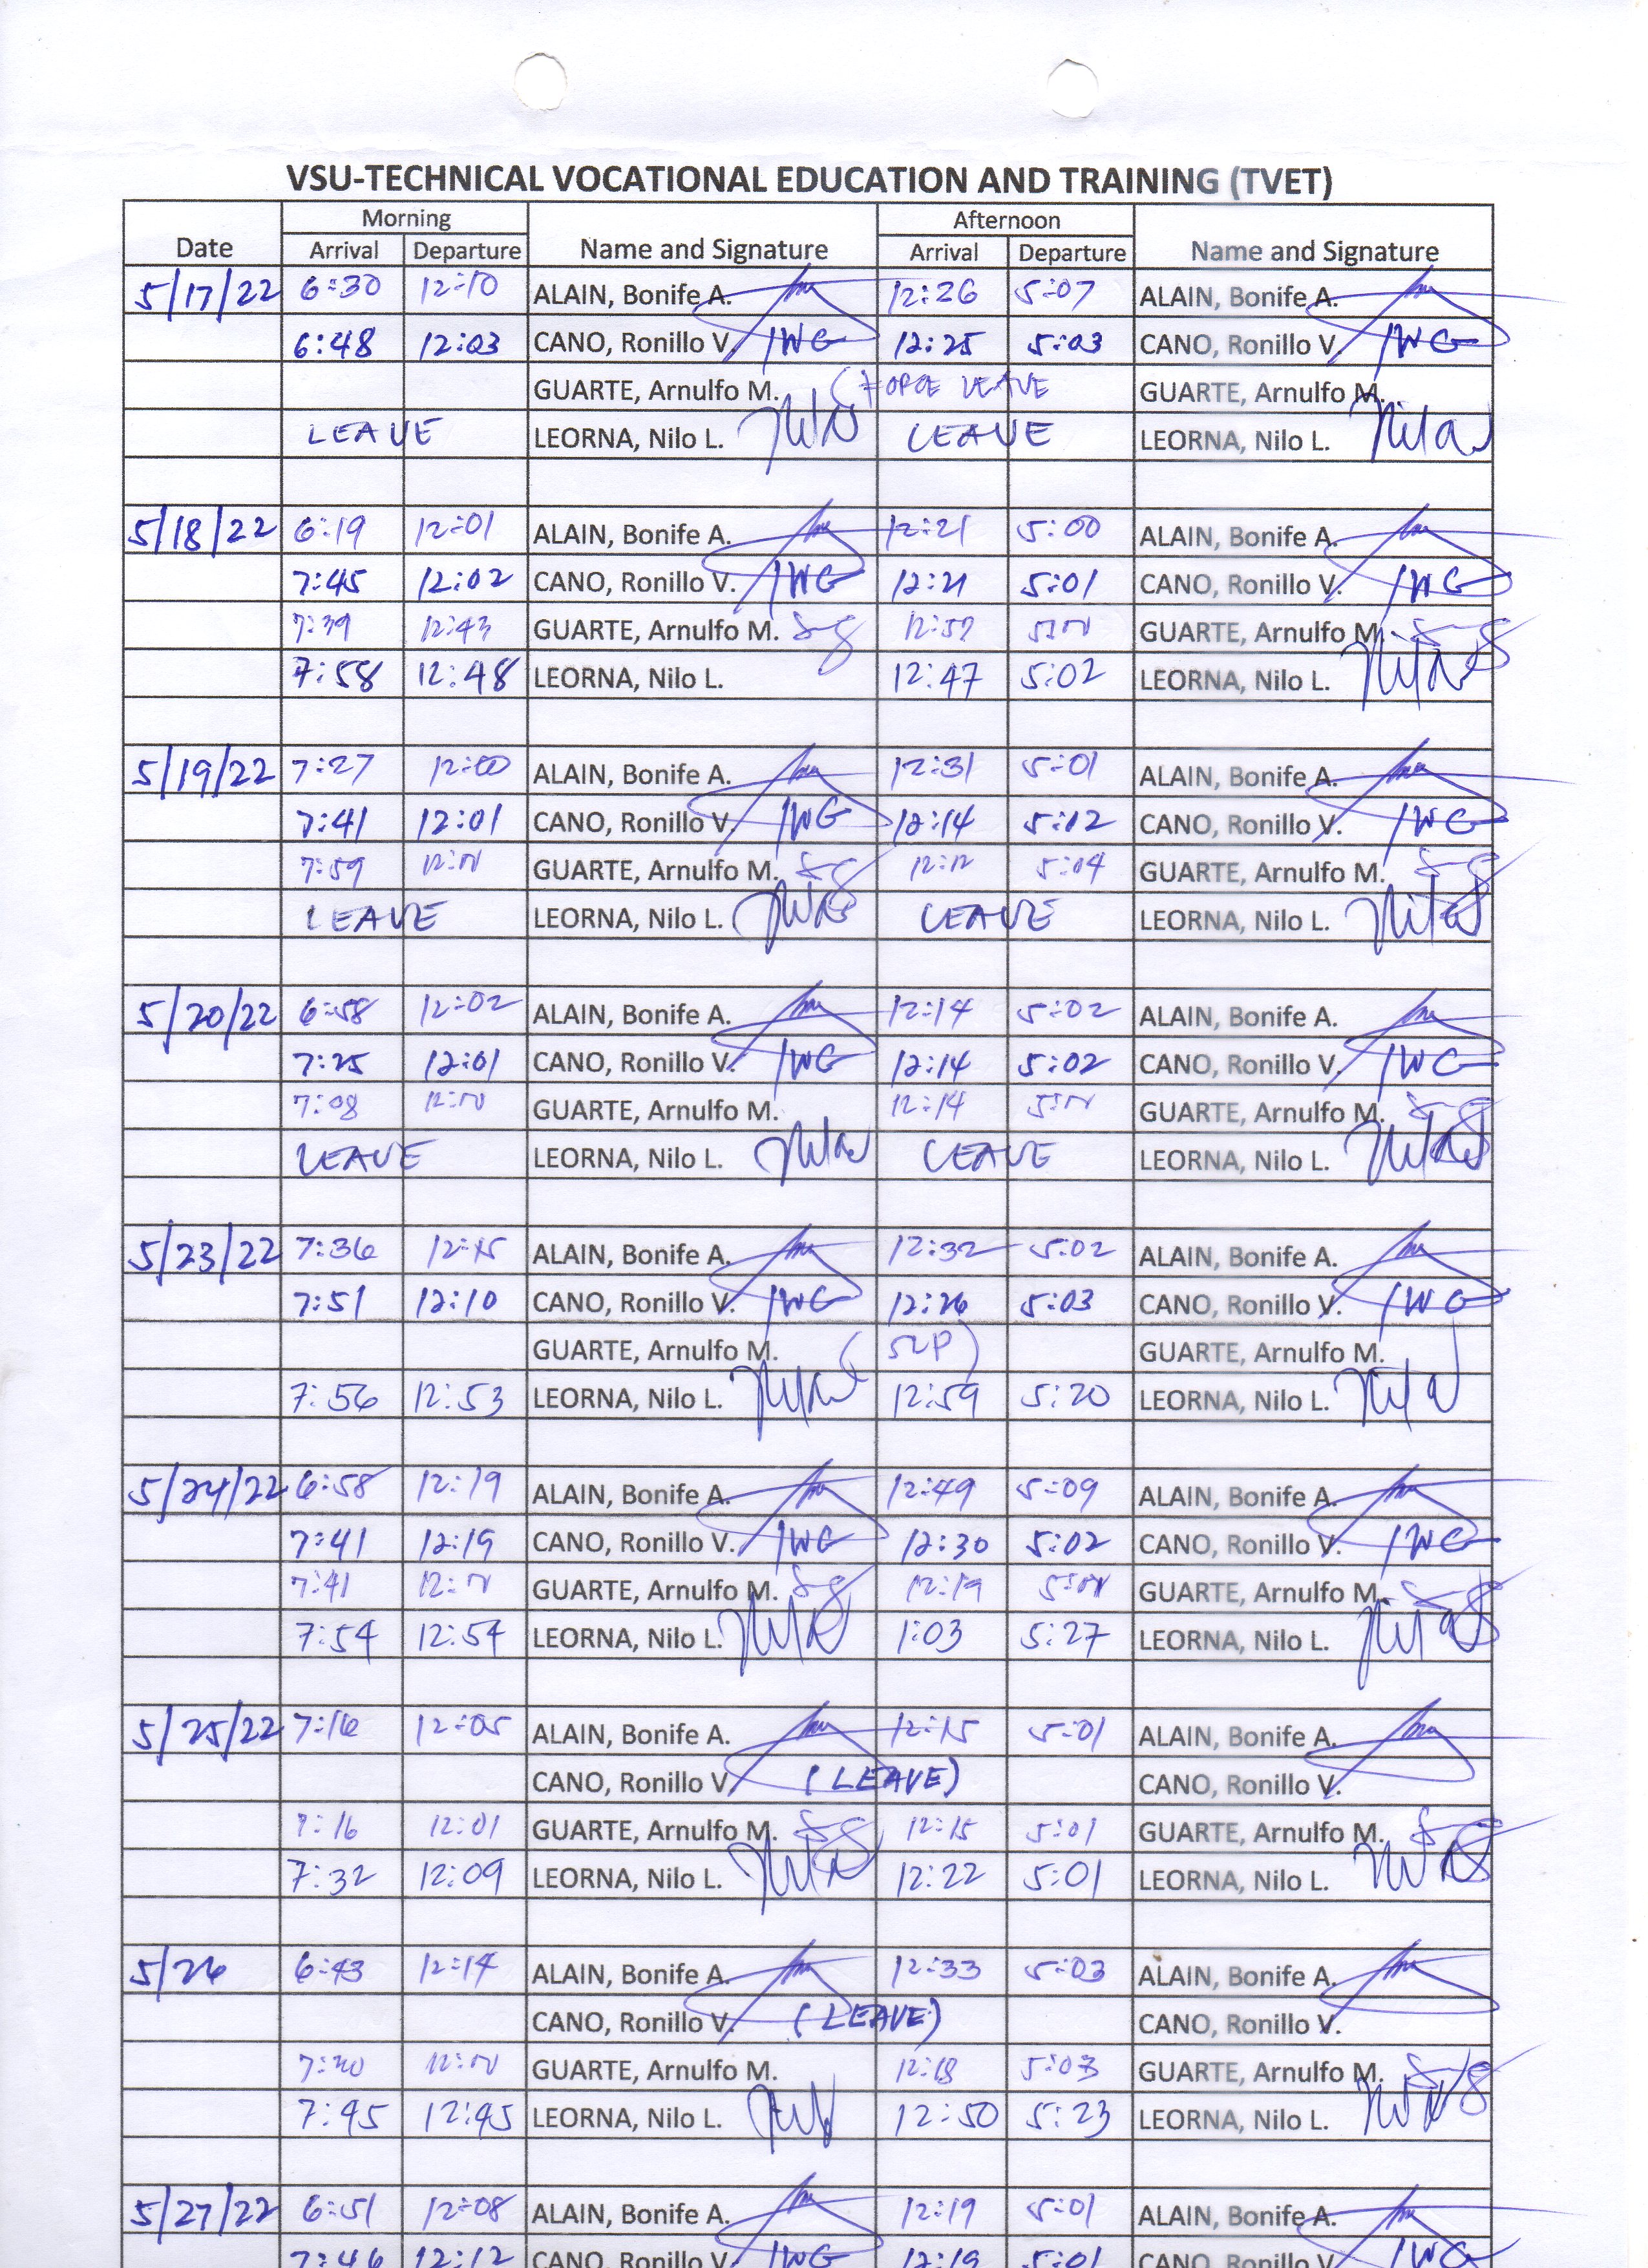 VSU-TECHNICAL VOCATIONAL EDUCATION AND TRAINING (TVET)
Morning Afternoon
Date Arrival Departure Name and Signature Arrival Departure Name and Signature
5/17/22 6:30 12:10 ALAIN, Bonife A. 12:26 5:07 ALAIN, Bonife A.
6:48 12:03 CANO, Ronillo V. 12:25 5:03 CANO, Ronillo V.
GUARTE, Arnulfo M. (FORCE LEAVE GUARTE, Arnulfo M.
LEAVE LEORNA, Nilo L. LEAVE LEORNA, Nilo L.
5/18/22 6:19 12:01 ALAIN, Bonife A. 12:21 5:00 ALAIN, Bonife A.
7:45 12:02 CANO, Ronillo V. 12:21 5:01 CANO, Ronillo V.
7:39 12:43 GUARTE, Arnulfo M. GUARTE, Arnulfo M.
7:58 12:48 LEORNA, Nilo L. 12:47 5:02 LEORNA, Nilo L.
5/19/22 7:27 12:00 ALAIN, Bonife A. 12:31 5:01 ALAIN, Bonife A.
7:41 12:01 CANO, Ronillo V. 12:14 5:02 CANO, Ronillo V.
7:59 GUARTE, Arnulfo M. 12:12 5:04 GUARTE, Arnulfo M.
LEAVE LEORNA, Nilo L. LEAVE LEORNA, Nilo L.
5/20/22 6:58 12:02 ALAIN, Bonife A. 12:14 5:02 ALAIN, Bonife A.
7:25 12:01 CANO, Ronillo V. 12:14 5:02 CANO, Ronillo V.
7:08 GUARTE, Arnulfo M. 12:14 GUARTE, Arnulfo M.
LEAVE LEORNA, Nilo L. LEAVE LEORNA, Nilo L.
5/23/22 7:36 ALAIN, Bonife A. 12:32 5:02 ALAIN, Bonife A.
7:51 12:10 CANO, Ronillo V. 12:26 5:03 CANO, Ronillo V.
GUARTE, Arnulfo M. (SLP) GUARTE, Arnulfo M.
7:56 12:53 LEORNA, Nilo L. 12:59 5:20 LEORNA, Nilo L.
5/24/22 6:58 12:19 ALAIN, Bonife A. 12:49 5:09 ALAIN, Bonife A.
7:41 12:19 CANO, Ronillo V. 12:30 5:02 CANO, Ronillo V.
7:41 GUARTE, Arnulfo M. 12:19 GUARTE, Arnulfo M.
7:54 12:54 LEORNA, Nilo L. 1:03 5:27 LEORNA, Nilo L.
5/25/22 7:16 12:05 ALAIN, Bonife A. 12:15 5:01 ALAIN, Bonife A.
CANO, Ronillo V. (LEAVE) CANO, Ronillo V.
7:16 12:01 GUARTE, Arnulfo M. 12:15 5:01 GUARTE, Arnulfo M.
7:32 12:09 LEORNA, Nilo L. 12:22 5:01 LEORNA, Nilo L.
5/26 6:43 12:14 ALAIN, Bonife A. 12:33 5:03 ALAIN, Bonife A.
CANO, Ronillo V. (LEAVE) CANO, Ronillo V.
GUARTE, Arnulfo M. 12:18 5:03 GUARTE, Arnulfo M.
7:45 12:45 LEORNA, Nilo L. 12:50 5:23 LEORNA, Nilo L.
5/27/22 6:51 12:08 ALAIN, Bonife A. 12:19 5:01 ALAIN, Bonife A.
7:46 12:12 CANO, Ronillo V. 12:19 5:01 CANO, Ronillo V.